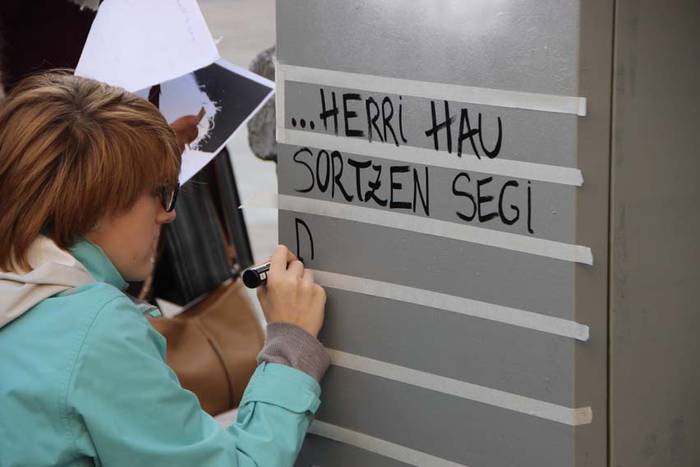 ...HERRi HAU
SORTZEN SEGi